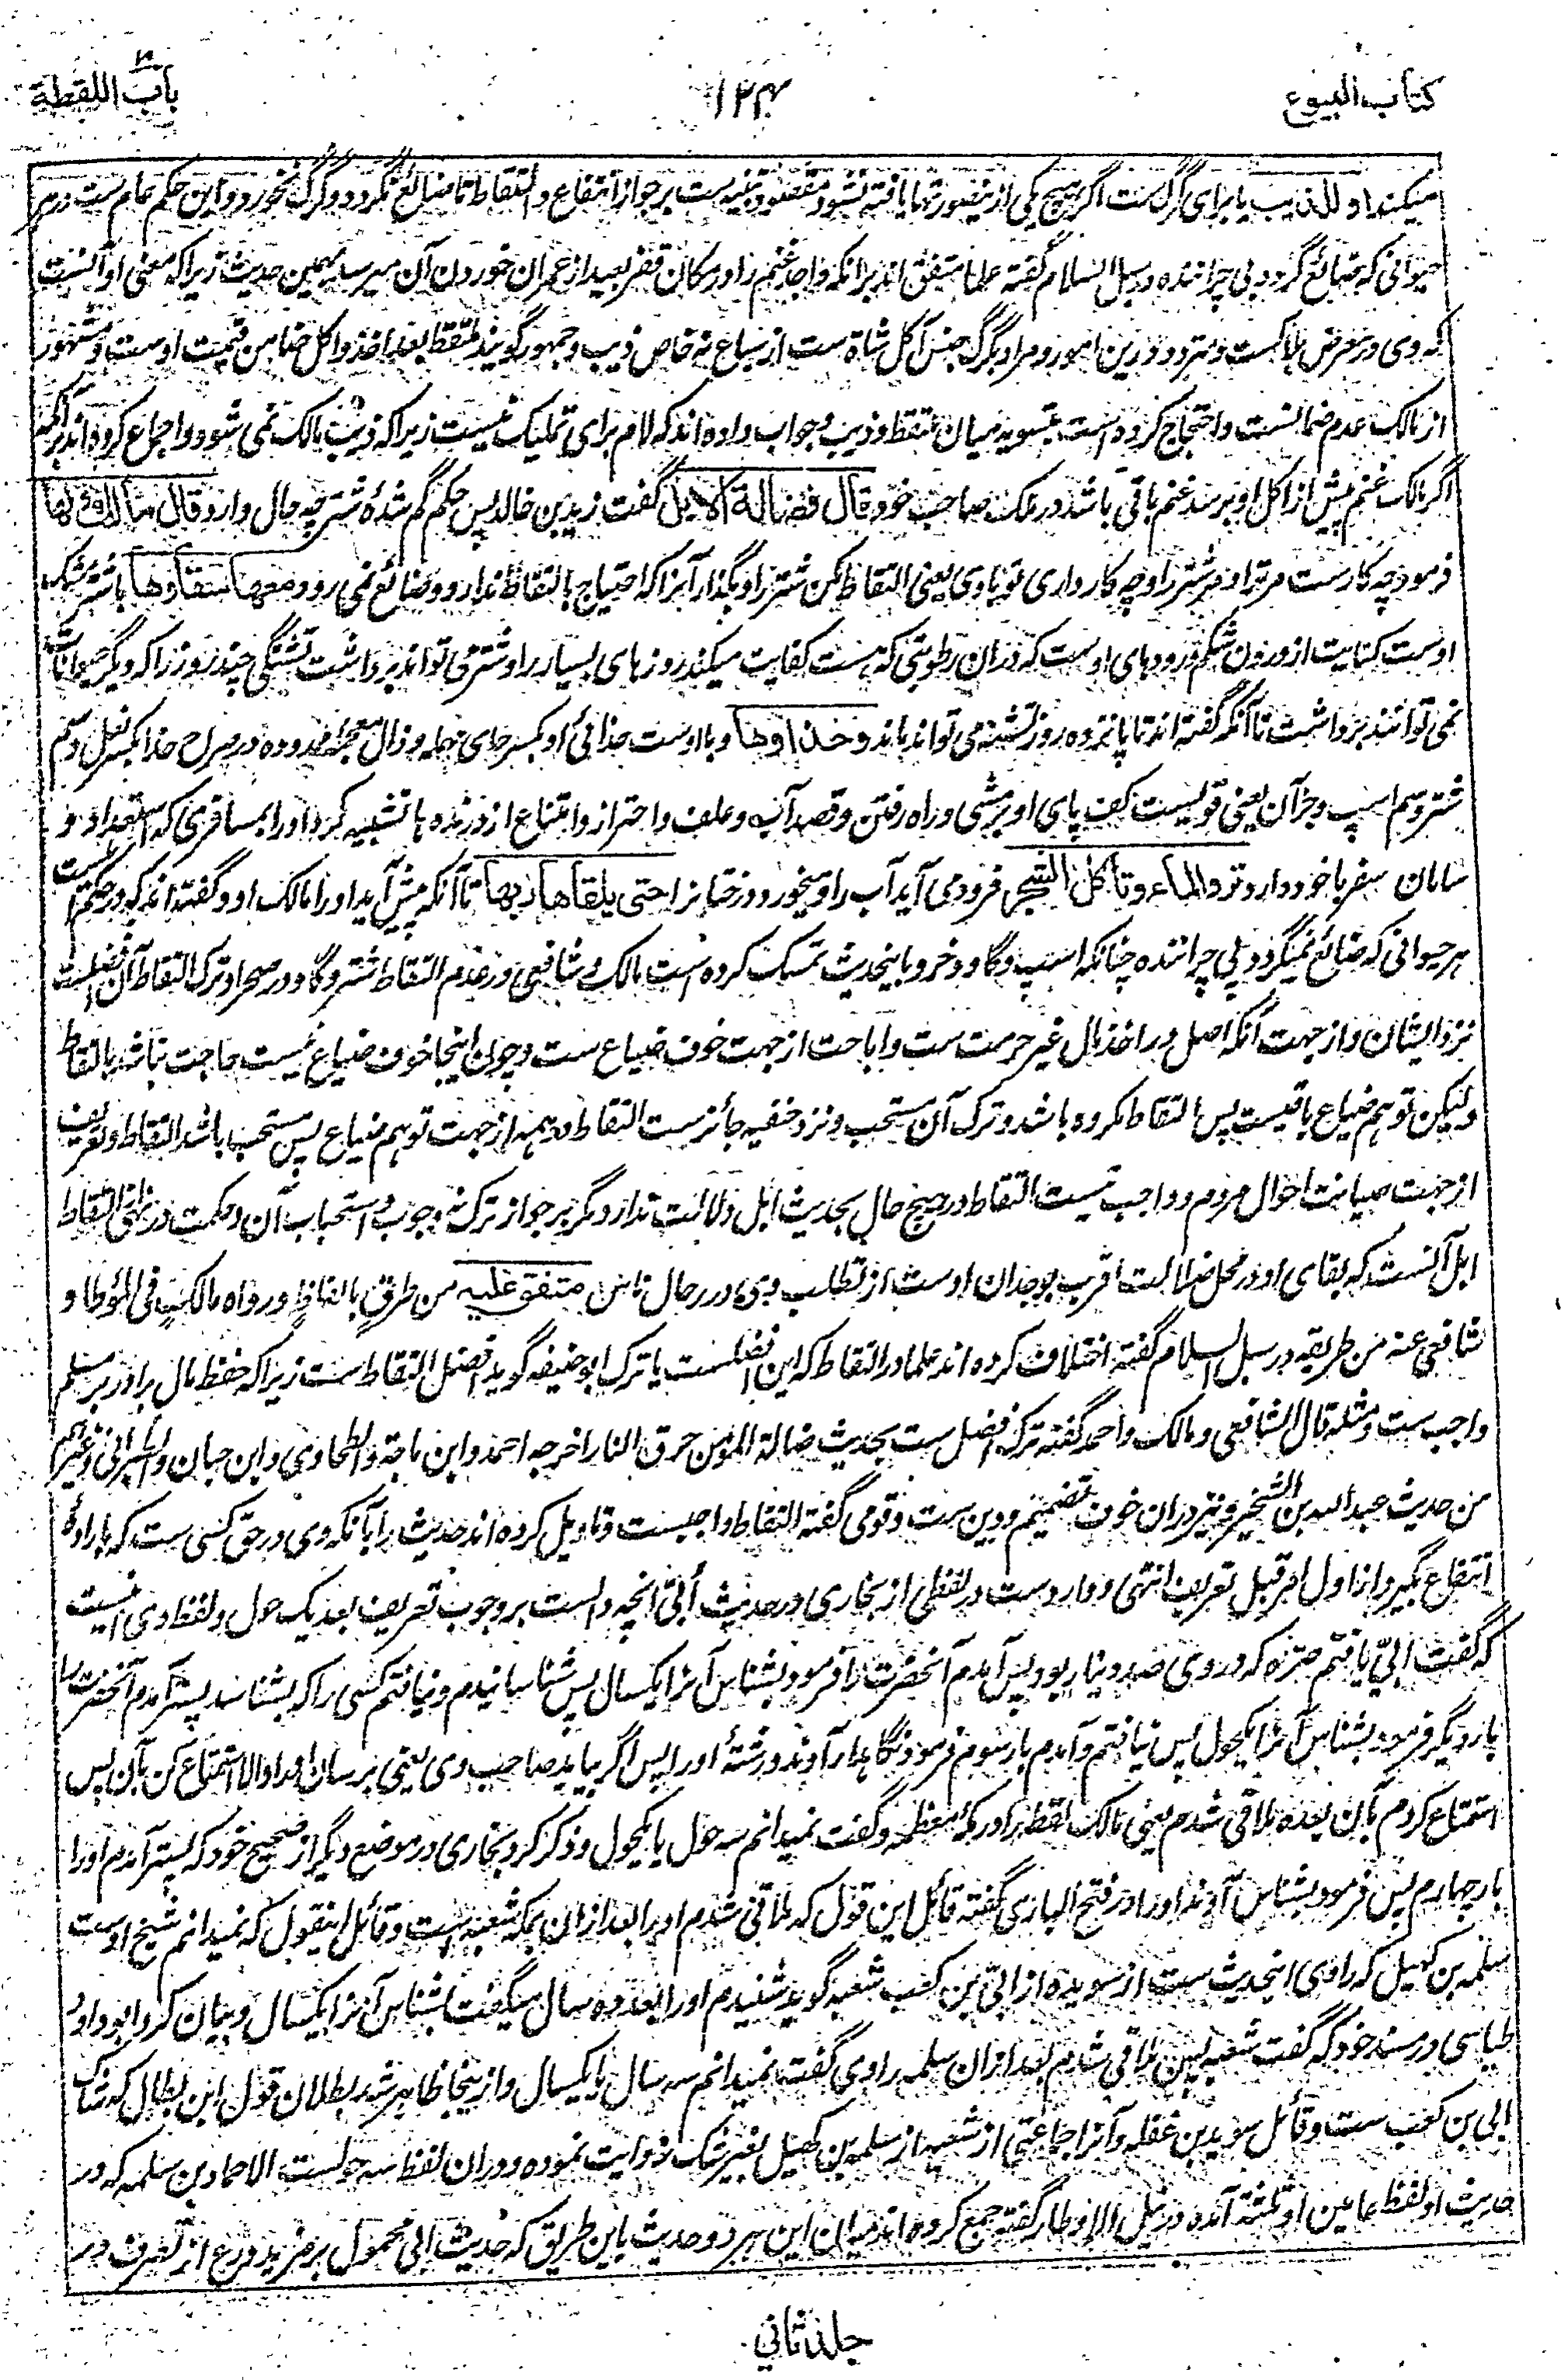 کتاب البیوع
۱۲۴
باب اللقطة
میکند او للذیب یا برای گرگ ست اگر هیچ یکی ازینصورتها یافته نشود مقصود تنبیه ست بر جواز انتفاع والتقاط تا ضائع نگردد و گرگ نخورد و این حکم عام ست در هر
حیوانی که ضائع گردد بی چراننده و در سبل السلام گفته علما متفق اند برانکه واجد غنم را در مکان قفر بعید از عمران خوردن آن میرسد بهمین حدیث زیراکه معنی او آنست
که وی در معرض هلاکست و متردد درین امور و مراد بگرگ جنس آکل شاة ست از سباع نه خاص ذیب و جمهور گویند ملتقط بعد اخذ و اکل ضامن قیمت اوست و مشهور
از مالک عدم ضمانست و احتجاج کرده است بتسویه میان ملتقط و ذیب و جواب داده اند که لام برای تملیک نیست زیراکه ذیب مالک نمی شود و اجماع کرده اند برآنکه
اگر مالک غنم پیش از اکل او برسد غنم باقی باشد در ملک صاحب خود قال فضالة الابل گفت زید بن خالد پس حکم گم شدهٔ شتر چه حال دارد قال مالک ولها
فرمود چه کارست مر ترا و مر شتر را و چه کار داری تو باوی یعنی التقاط مکن شتر را و بگذار آنرا که احتیاج بالتقاط ندارد و ضائع نمی رود معها سقاؤها با شتر مشک
اوست کنایت از درون شکم و رودهای اوست که دران رطوبتی که هست کفایت میکند روزهای بسیار را و شتر می تواند برداشت تشنگی چند روز را که دیگر حیوانات
نمی توانند برداشت تا آنکه گفته اند تا پانزده روز تشنه می تواند ماند و حذاؤها و با اوست حذائی او بکسر حای مهمله و ذال معجمه ممدوده در صراح حذا بکسر نعل و سم
شتر و سم اسپ و جز آن یعنی قویست کف پای او بر مشی و راه رفتن و قصد آب و علف و احتراز و امتناع از درنده ها تشبیه کرد او را بمسافری که استعداد و
سامان سفر با خود دارد ترد الماء وتأکل الشجر فرود می آید آب را و میخورد درختانرا حتی یلقاها ربها تا آنکه پیش آید او را مالک او و گفته اند که در حکم اوست
هر حیوانی که ضائع نمیگردد بی چراننده چنانکه اسپ و گاو و خر و باینحدیث تمسک کرده است مالک و شافعی در عدم التقاط شتر و گاو در صحرا و ترک التقاط آن افضلست
نزد ایشان و از جهت آنکه اصل در اخذ مال غیر حرمت ست و اباحت از جهت خوف ضیاع ست و چون اینجا خوف ضیاع نیست حاجت نباشد بالتقاط
ولیکن توهم ضیاع باقیست پس التقاط مکروه باشد و ترک آن مستحب و نزد حنفیه جائزست التقاط در همه از جهت توهم ضیاع پس مستحب باشد التقاط و تعریف
از جهت صیانت اموال مردم و واجب نیست التقاط در هیچ حال بحدیث ابل و دلالت ندارد مگر بر جواز ترک نه وجوب و استحباب آن و حکمت در نهی التقاط
ابل آنست که بقای او در محل ضلالت اقرب بوجدان اوست از تطلب وی در رحال ناس متفق علیه من طرق بالفاظ ورواه مالک فی الموطا و
شافعی عنه من طریقه در سبل السلام گفته اختلاف کرده اند علما در التقاط که این افضلست یا ترک ابو حنیفه گوید افضل التقاط ست زیراکه حفظ مال برادر بر مسلم
واجب ست ومثله قال الشافعی و مالک و احمد گفته ترک افضل ست بحدیث ضالة المؤمن حرق النار اخرجه احمد وابن ماجة والطحاوی وابن حبان والطبرانی وغیرهم
من حدیث عبد الله بن الشخیر و نیز دران خوف تضمین و دین ست و قومی گفته التقاط واجبست و تاویل کرده اند حدیث را بآنکه وی در حق کسی ست که باراده
انتفاع بگیرد از اول امر قبل تعریف انتهی و وارد ست در لفظی از بخاری در حدیث أبیّ آنچه دالست بر وجوب تعریف بعد یک حول و لفظ وی اینست
که گفت ابیّ یافتم صرّه که در وی صد دینار بود پس آمدم آنحضرت را فرمود بشناس آنرا یکسال پس شناسانیدم و نیافتم کسی را که بشناسد پستر آمدم آنحضرت را
بار دیگر فرمود بشناس آنرا یکحول پس نیافتم و آمدم بار سوم فرمود نگاهدار آوند و رشتهٔ او را پس اگر بیاید صاحب وی یعنی برسان او را والا استمتاع کن بآن پس
استمتاع کردم بآن بعده ملاقی شدم یعنی مالک لقطه را در مکهٔ معظمه و گفت نمیدانم سه حول یا یکحول و ذکر کرد بخاری در موضع دیگر از صحیح خود که پستر آمدم او را
بار چهارم پس فرمود بشناس آوند او را و در فتح الباری گفته قائل این قول که ملاقی شدم او را بعد ازان بمکه شعبه است و قائل اینقول که نمیدانم شیخ اوست
سلمه بن کهیل که راوی اینحدیث ست از سوید از ابیّ بن کعب شعبه گوید شنیدم او را بعد ده سال میگفت بشناس آنرا یکسال و بیان کرد ابو داود
طیالسی در مسند خود که گفت شعبه پس ملاقی شدم بعد ازان سلمه راوی گفت نمیدانم سه سال یا یکسال و ازینجا ظاهر شد بطلان قول ابن بطال که شاک
ابی بن کعب ست و قائل سوید بن غفله و آنرا جماعتی از شعبه از سلمه بن کهیل بغیر شک روایت نموده و دران لفظ سه حولست الا حماد بن سلمه که در
حدیث او لفظ عامین او ثلثة آمده در نیل الاوطار گفته جمع کرده اند میان این هر دو حدیث باین طریق که حدیث ابی محمول بر مزید ورع از تصرف در
جلد ثانی